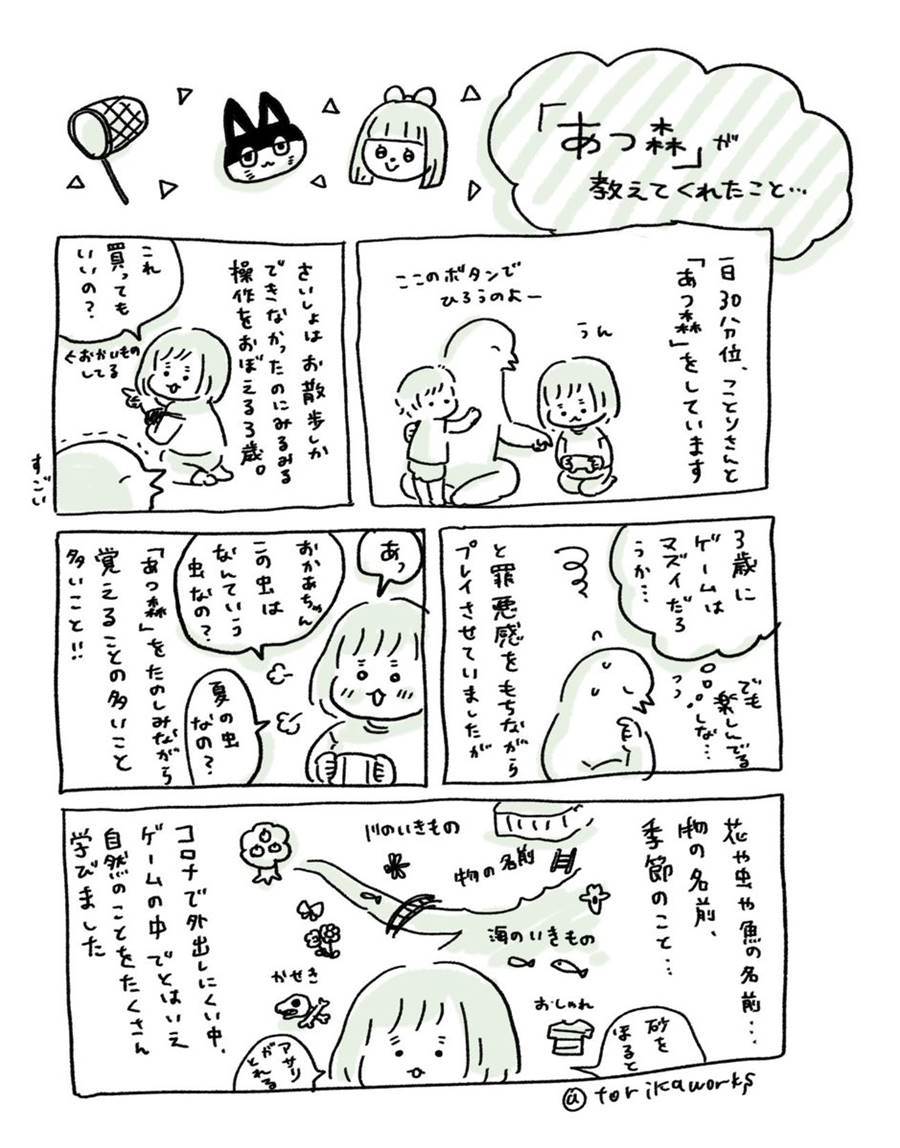 「あつ森」が
教えてくれたこと…
一日30分位、ことりさんと
「あつ森」をしています
うん
ここのボタンで
ひろうのよー
さいしょはお散歩しか
できなかったのにみるみる
操作をおぼえる3歳。
これ
買っても
いいの?
<おかいもの
してる
すごい
3歳に
ゲームは
マズイだろ
うか…
でも
楽しんでる
しな…
と罪悪感をもちながら
プレイさせていましたが
あっ
おかあちゃん
この虫は
なんていう
虫なの?
夏の虫
なの?
「あつ森」をたのしみながら
覚えることの多いこと
多いこと!!
花や虫や魚の名前…
物の名前、
季節のこと…
川のいきもの
物の名前
海のいきもの
かせき
おしゃれ
砂を
ほると
アサリ
がとれる
コロナで外出しにくい中、
ゲームの中でとはいえ
自然のことをたくさん
学びました
@torikaworks